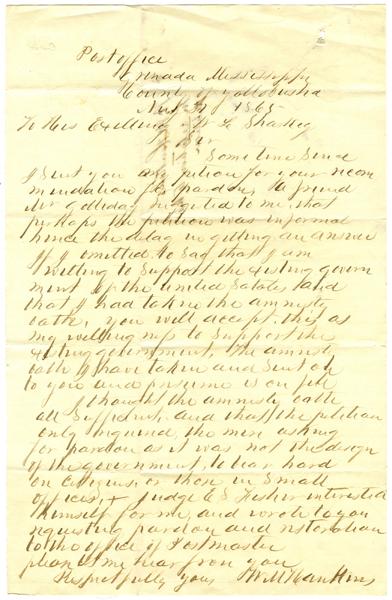 Post office
Grenada Mississippi
County of Yallobusha
1865
To His Exellency W L Sharkey
Sir
Some time Since
I Sent you my petion for your recom
mendation for pardon, A friend
Mr Golliday suggested to me, that
perhaps the petition was informal
hence the delay in getting an answer
If I omitted to Say that I am
willing to Support the Existing govern
ment of the united States and
that I had taken the amnesty
oath, you will accept this as
my willingness to Support the
Existing government. The amnesty
oath I have taken and Sent on
to you and presume is on file
I thought the amnesty oath
all Sufficient, and that the petition
only required, the men asking
for pardon as it was not the design
of the government, to bear hard
on Citizens, or those in Small
offices, + Judge E S Fisher interested
himself for me, and wrote to you
requesting pardon and restoration
to the office of Postmaster
please let me hear from you
Respectfully yours